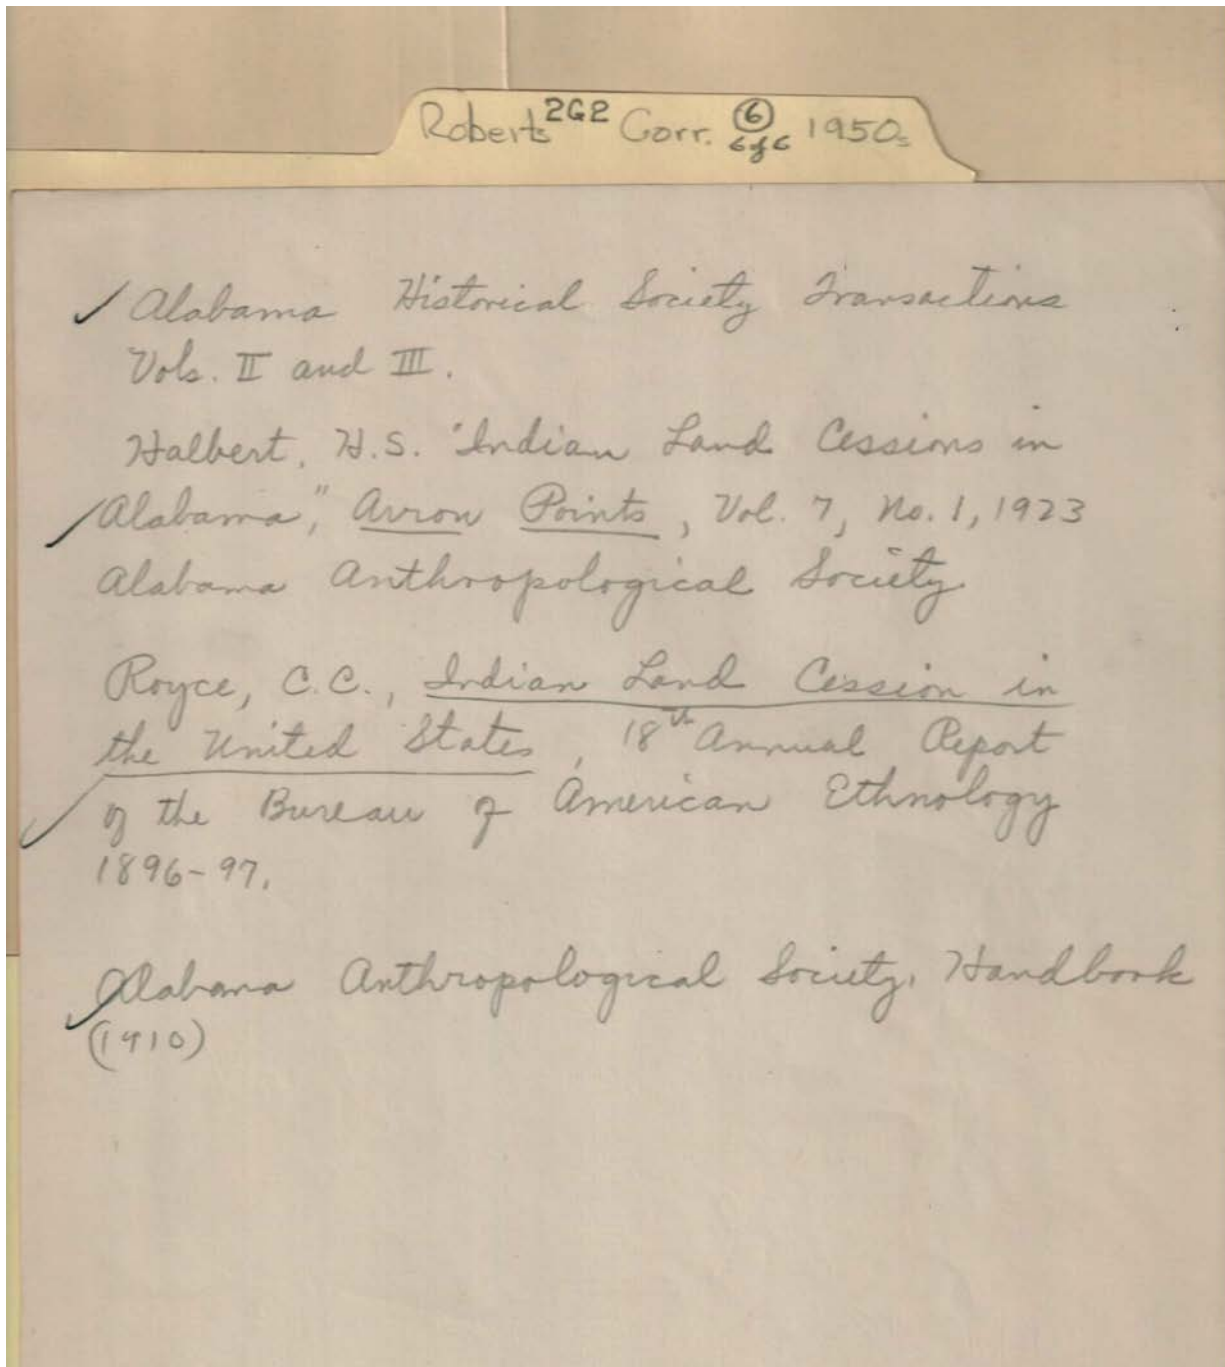 Roberts 2G2 Corr. 6 1950s
6 of 6
✓ Alabama Historical Society Transactions
Vols. II and III.
Halbert, H.S. "Indian Land Cessions in
✓ Alabama", Arrow Points, Vol. 7, No. 1, 1923
Alabama Anthropological Society
Royce, C.C., Indian Land Cession in
the United States, 18th Annual Report
✓ of the Bureau of American Ethnology
1896-97.
✓ Alabama Anthropological Society, Handbook
(1910)